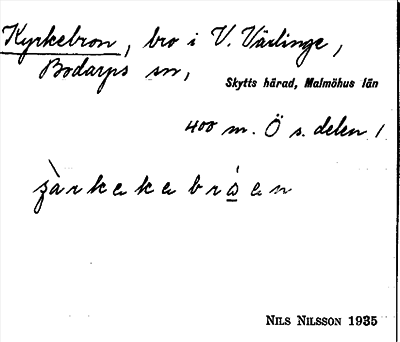 Kyrkebron, bro i V. Värlinge,
Bodarps sn,
Skytts härad, Malmöhus län
400 m. Ö s. delen /
NILS NILSSON 1935